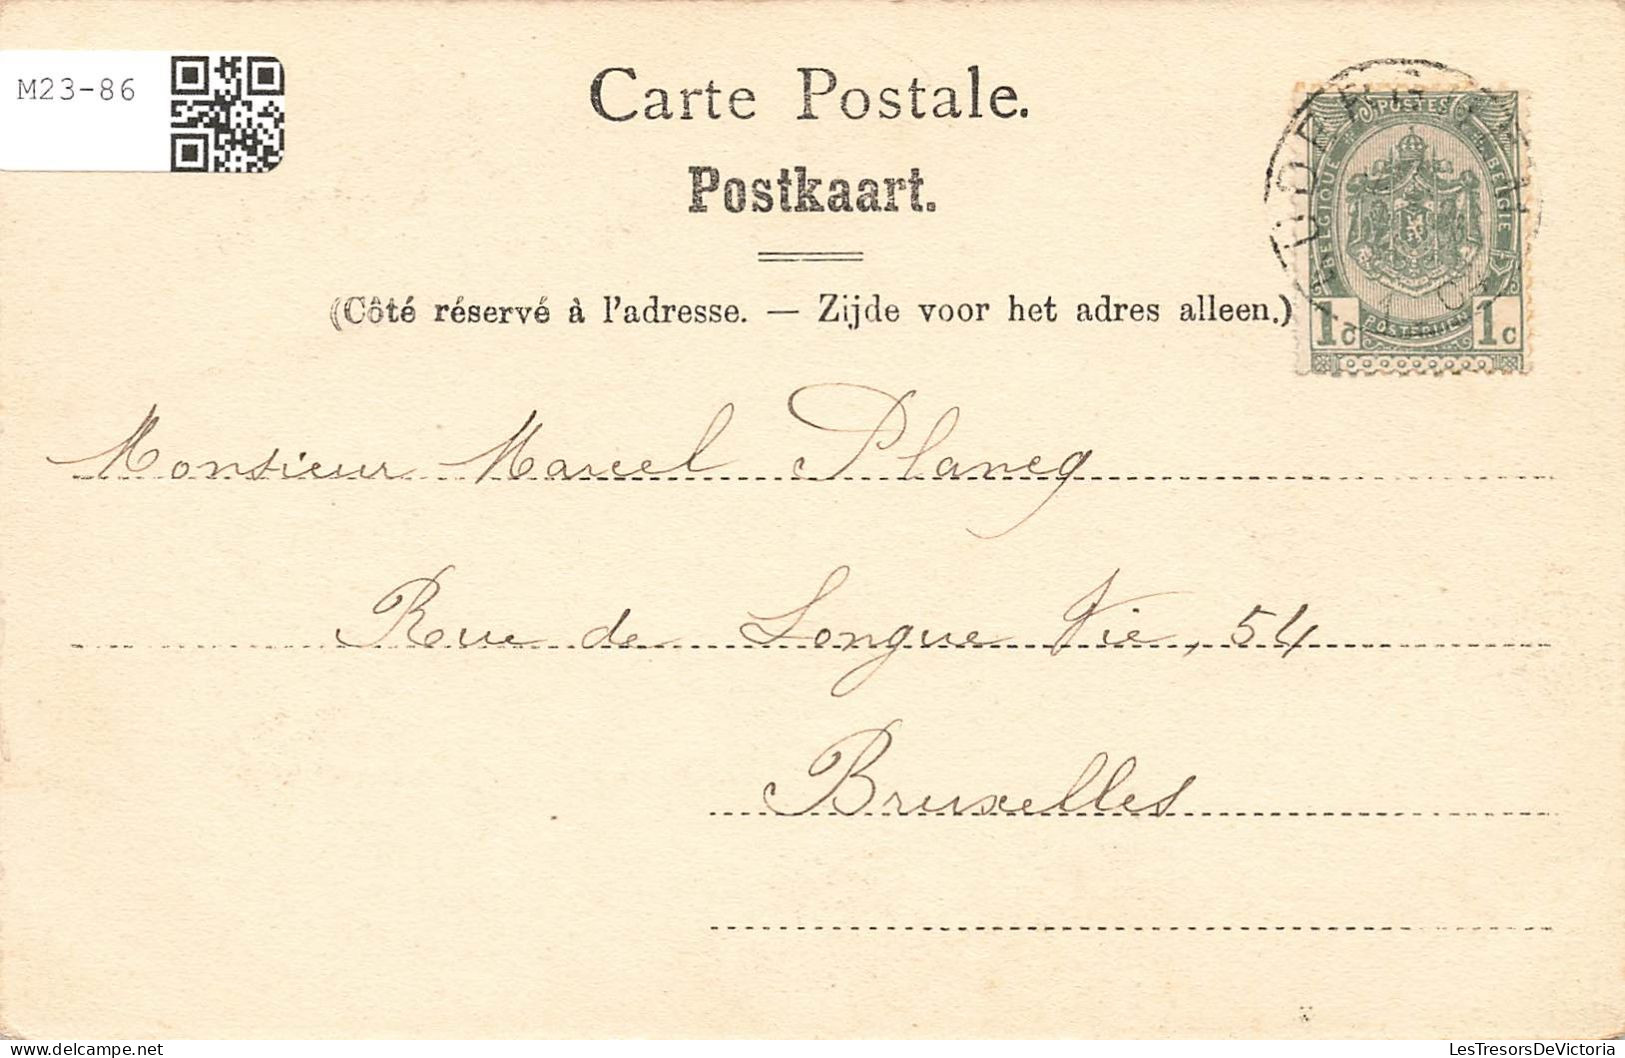 M23-86
Carte Postale.
Postkaart.
(Côté réservé à l'adresse. — Zijde voor het adres alleen.)
POSTES
BELGIQUE
BELGIE
POSTERIJEN
1c 1c
Monsieur Marcel Plancq
Rue de Longue Vie, 54
Bruxelles
LesTresorsDeVictoria